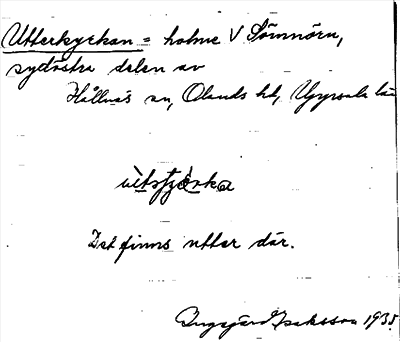 Utterkyrkan = holme V Sömnörn,
sydöstra delen av
Hållnäs sn, Olands hd, Uppsala län
Det finns utter där.
Ingegärd Isaksson 1935